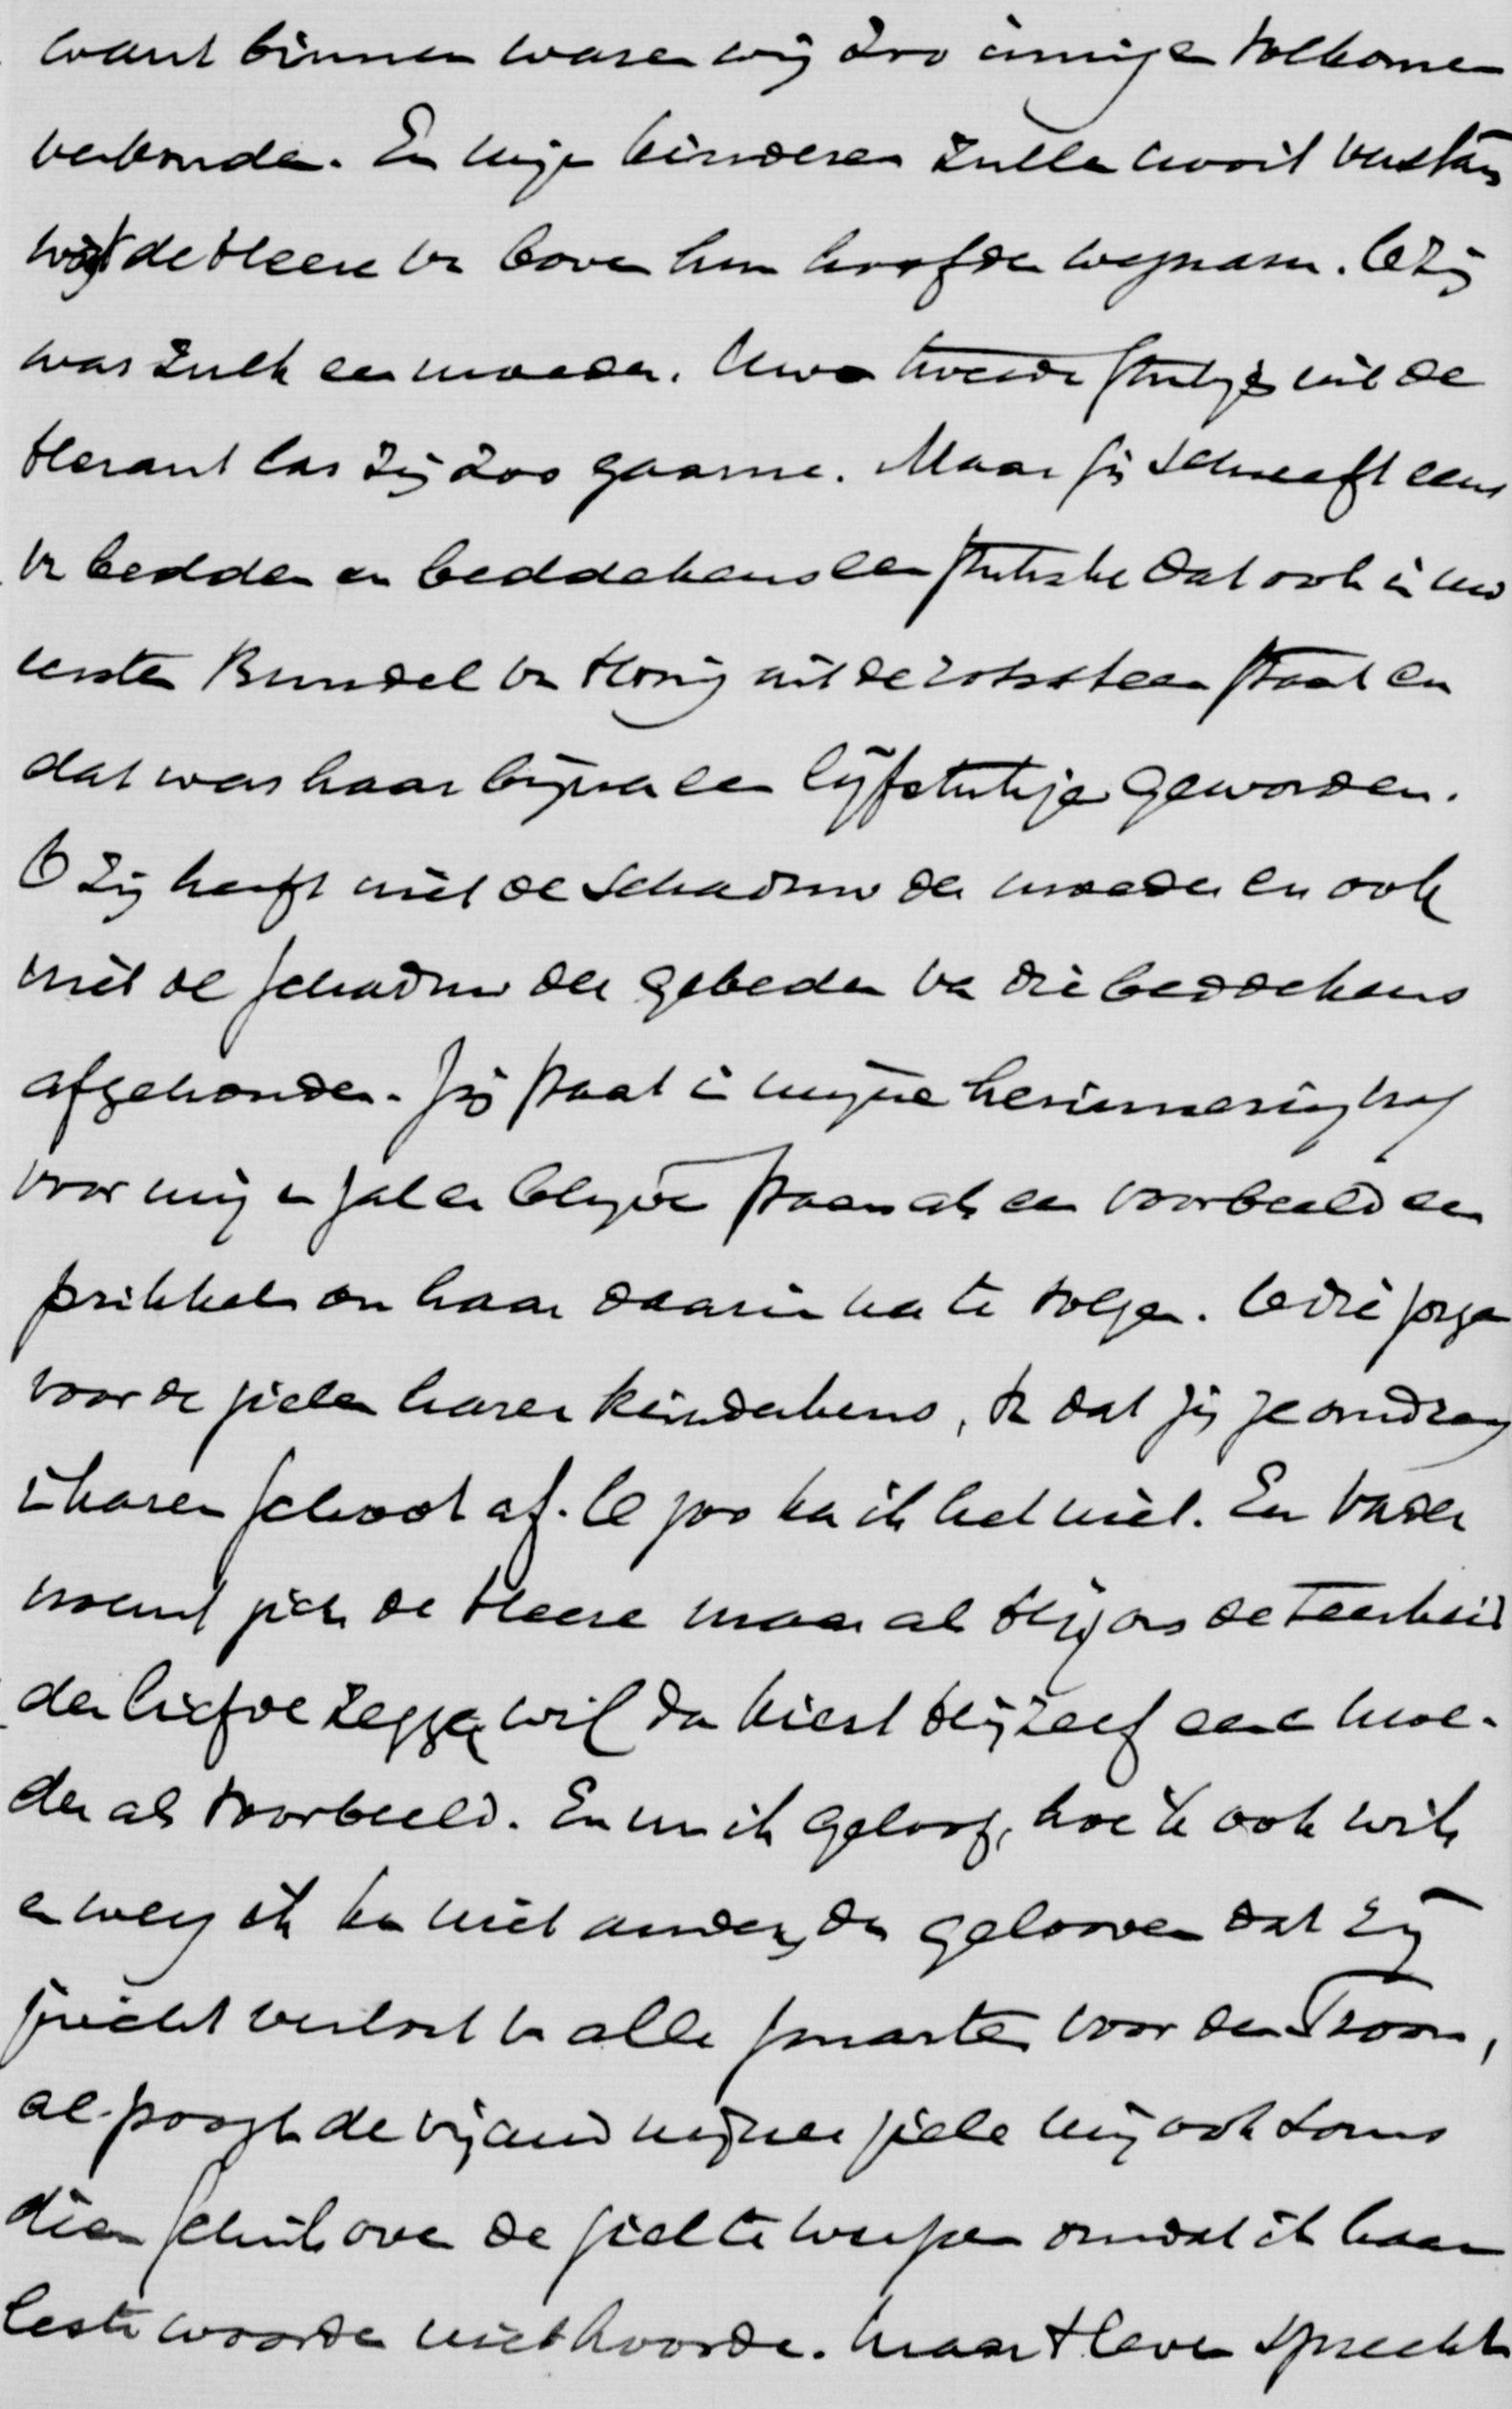 want binnen waren wij zoo innig en volkomen
verbonden. En mijn kinderen zullen nooit verstaan
wat de Heere van boven hun hoofden wegnam. O Zij
was zulk een moeder. Uwe tweede stukjes uit de
Heraut las zij zoo gaarne. Maar gij schreeft eens
van bedden en beddekens een stukske dat ook in uw
eersten Bundel van Honig uit de rotssteen staat en
dat was haar bijna een lijfstukje geworden.
O Zij heeft niet de schaduw der moeder en ook
niet de schaduw der gebeden van die beddekens
afgehouden. Zij staat in mijne herinnering nog
voor mij en zal er blijven staan als een voorbeeld een
prikkel om haar daarin na te volgen. O die zorgen
voor de zielen harer kinderkens, van dat zij ze omdroeg
in haren schoot af. O zoo kan ik het niet. En Vader
noemt zich de Heere maar als Hij ons de teerheid
der liefde zeggen wil dan kiest Hij zelf eene moe-
der als voorbeeld. En nu ik geloof, hoe ik ook wik
en weeg ik kan niet anders dan gelooven dat zij
juicht verlost van alle smarten voor den Troon,
al poogt de vijand mijner ziele mij ook soms
dien schrik over de ziel te werpen omdat ik haar
leste woorden niet hoorde. Maar 't leven spreekt